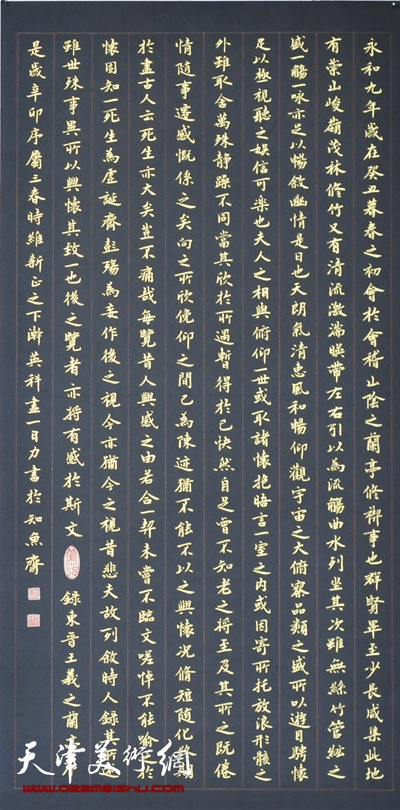 永和九年歲在癸丑暮春之初會於會稽山陰之蘭亭修禊事也群賢畢至少長咸集此地
有崇山峻嶺茂林修竹又有清流激湍暎帶左右引以為流觴曲水列坐其次雖無絲竹管絃之
盛一觴一咏亦足以暢敘幽情是日也天朗氣清惠風和暢仰觀宇宙之大俯察品類之盛所以遊目騁懷
足以極視聽之娛信可樂也夫人之相與俯仰一世或取諸懷抱晤言一室之內或因寄所托放浪形骸之
外雖取舍萬殊靜躁不同當其欣於所遇暫得於己快然自足曾不知老之將至及其所之既倦
情隨事遷感慨係之矣向之所欣俛仰之間已為陳迹猶不能不以之興懷況脩短隨化終期
於盡古人云死生亦大矣豈不痛哉每覽昔人興感之由若合一契未嘗不臨文嗟悼不能喻於
懷固知一死生為虛誕齊彭殤為妄作後之視今亦猶今之視昔悲夫故列敘時人錄其所
雖世殊事異所以興懷其致一也後之覽者亦將有感於斯文 錄東晉王羲之蘭亭
是歲辛卯序屬三春時維新正之下澣英科盡一日力書於知魚齋
天津美術網
www.022meishu.com